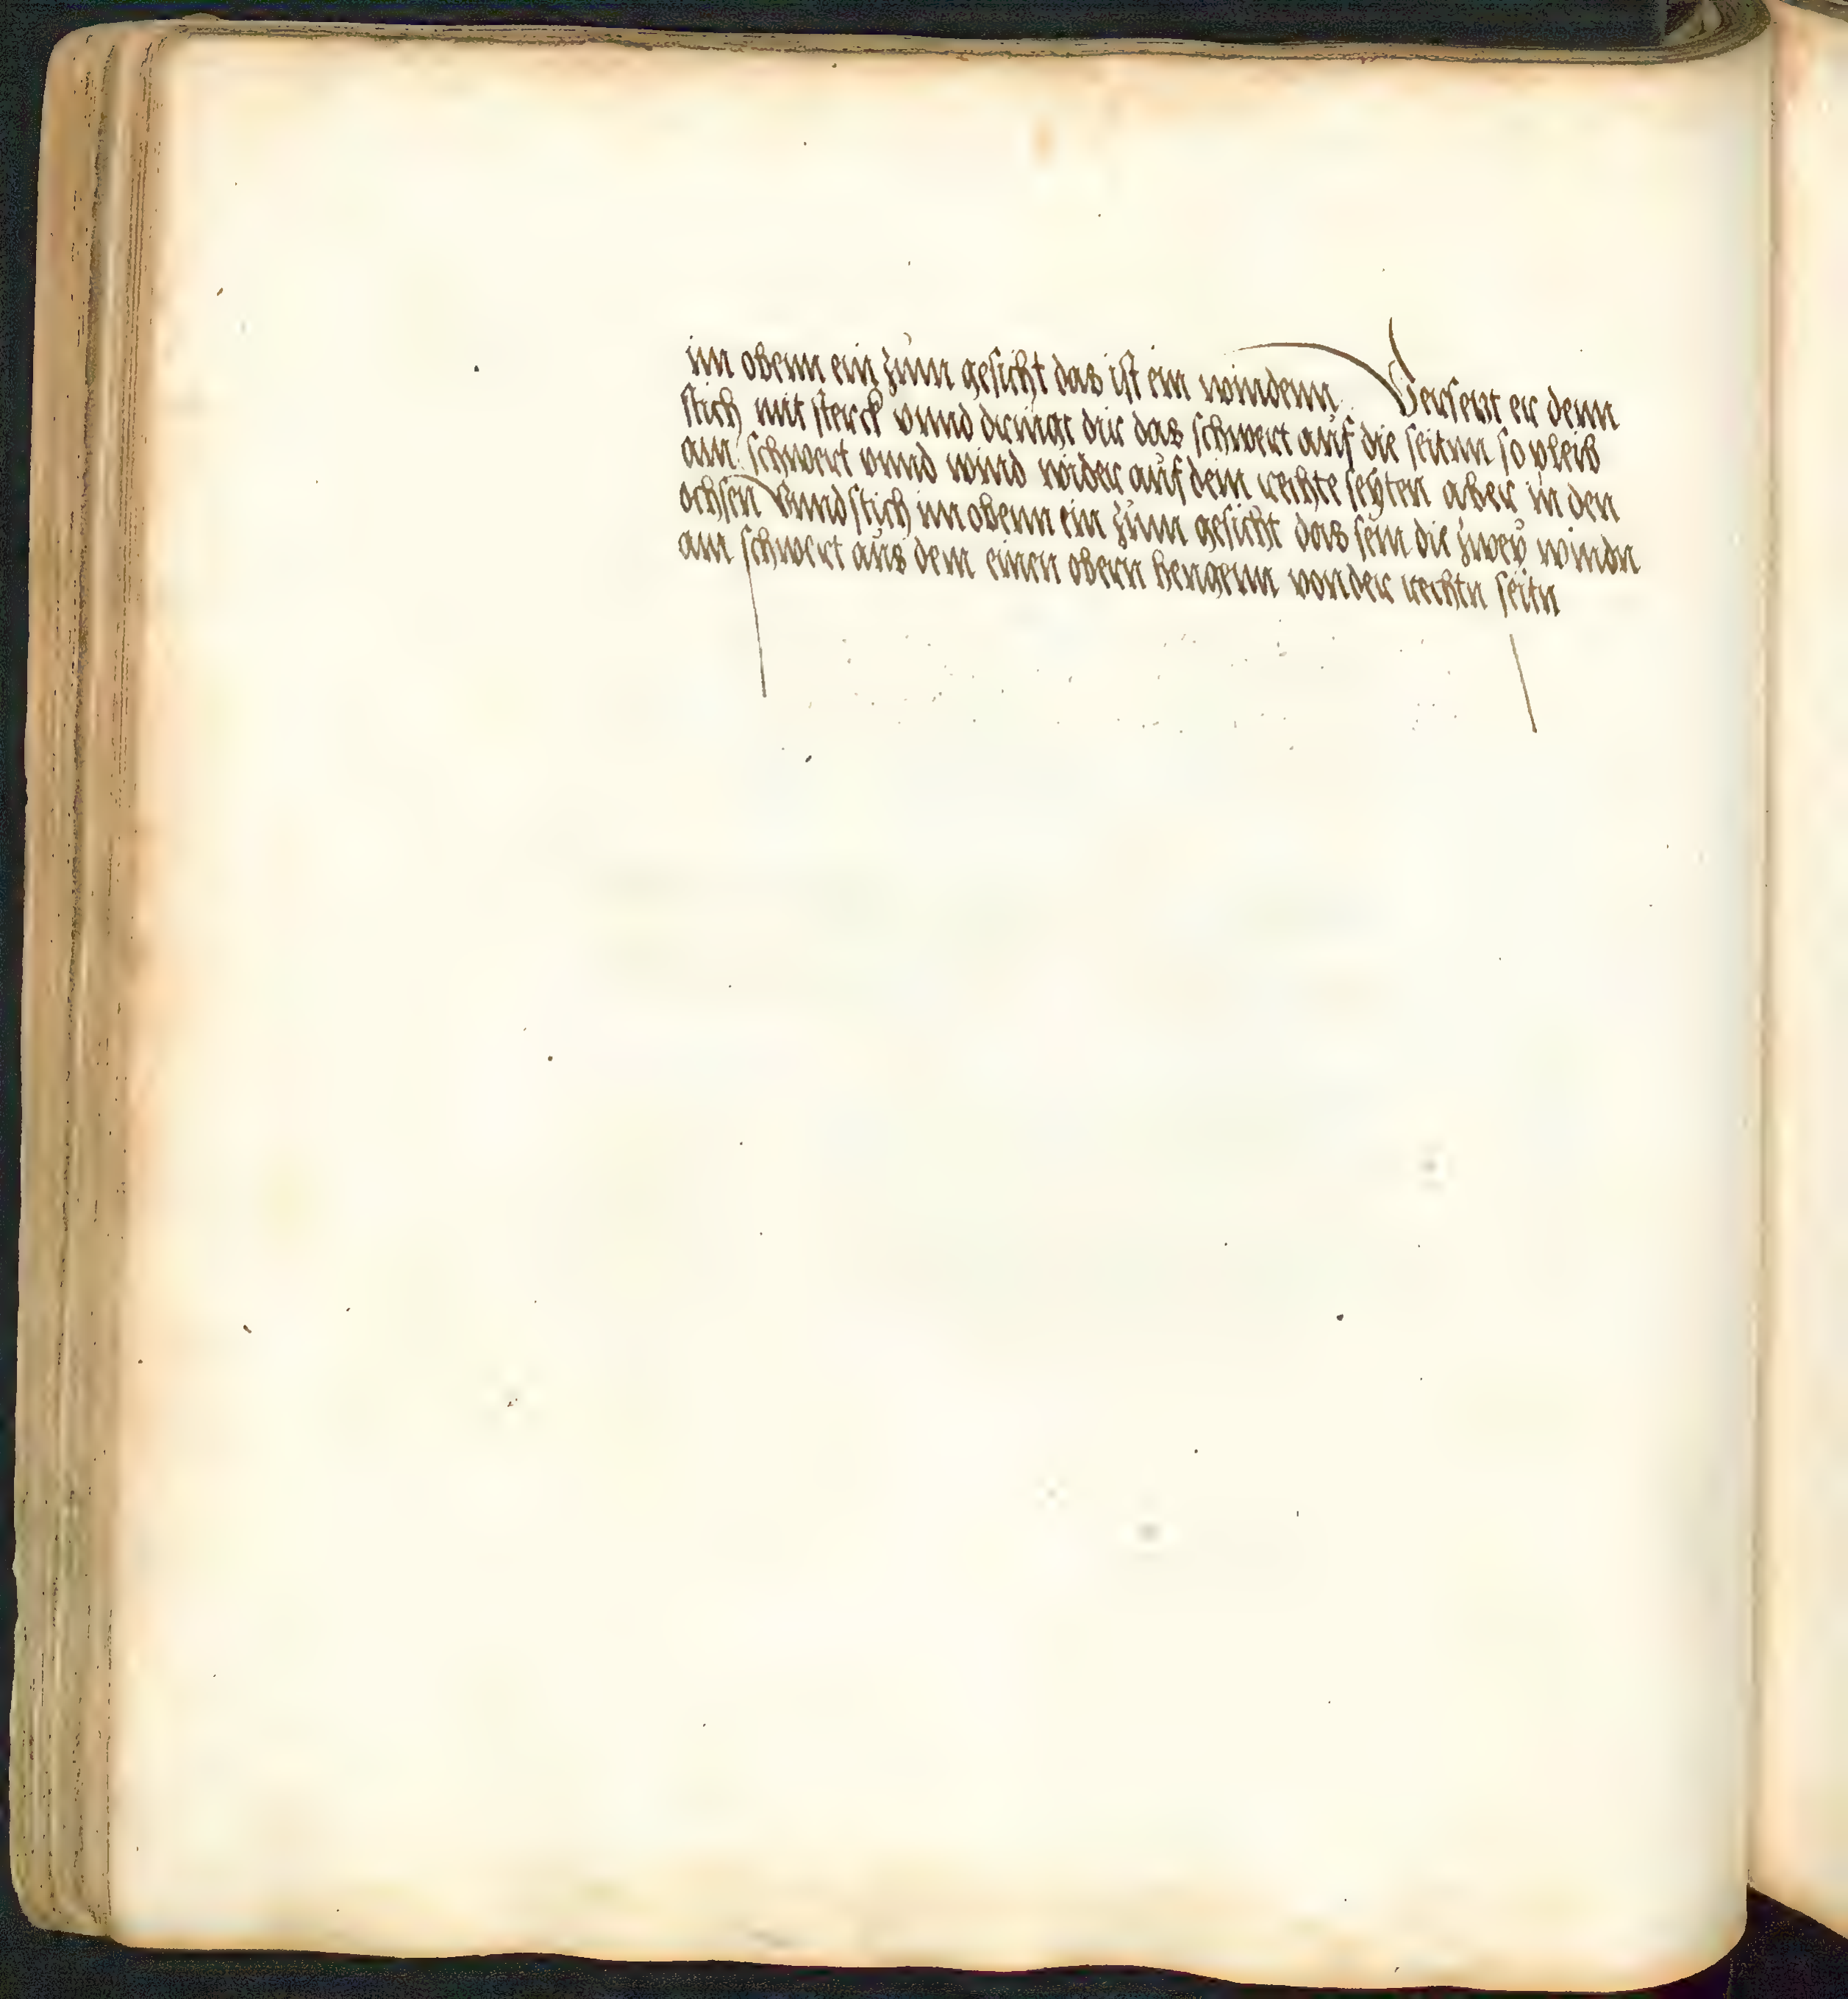 im obenn ein zůnn gesicht das ist ein windenn Versetzt er denn
stich mit sterck vnnd dringt dir das schwert auf die seitnn so pleib
am schwert vnnd wind wider aůf dein rechte seÿten aber in den
ochsen Vnnd stich im obenn ein zůnn gesicht das sein die zweÿ windn
am schwert aůs dem einen obern hengenn von der rechtn seitn